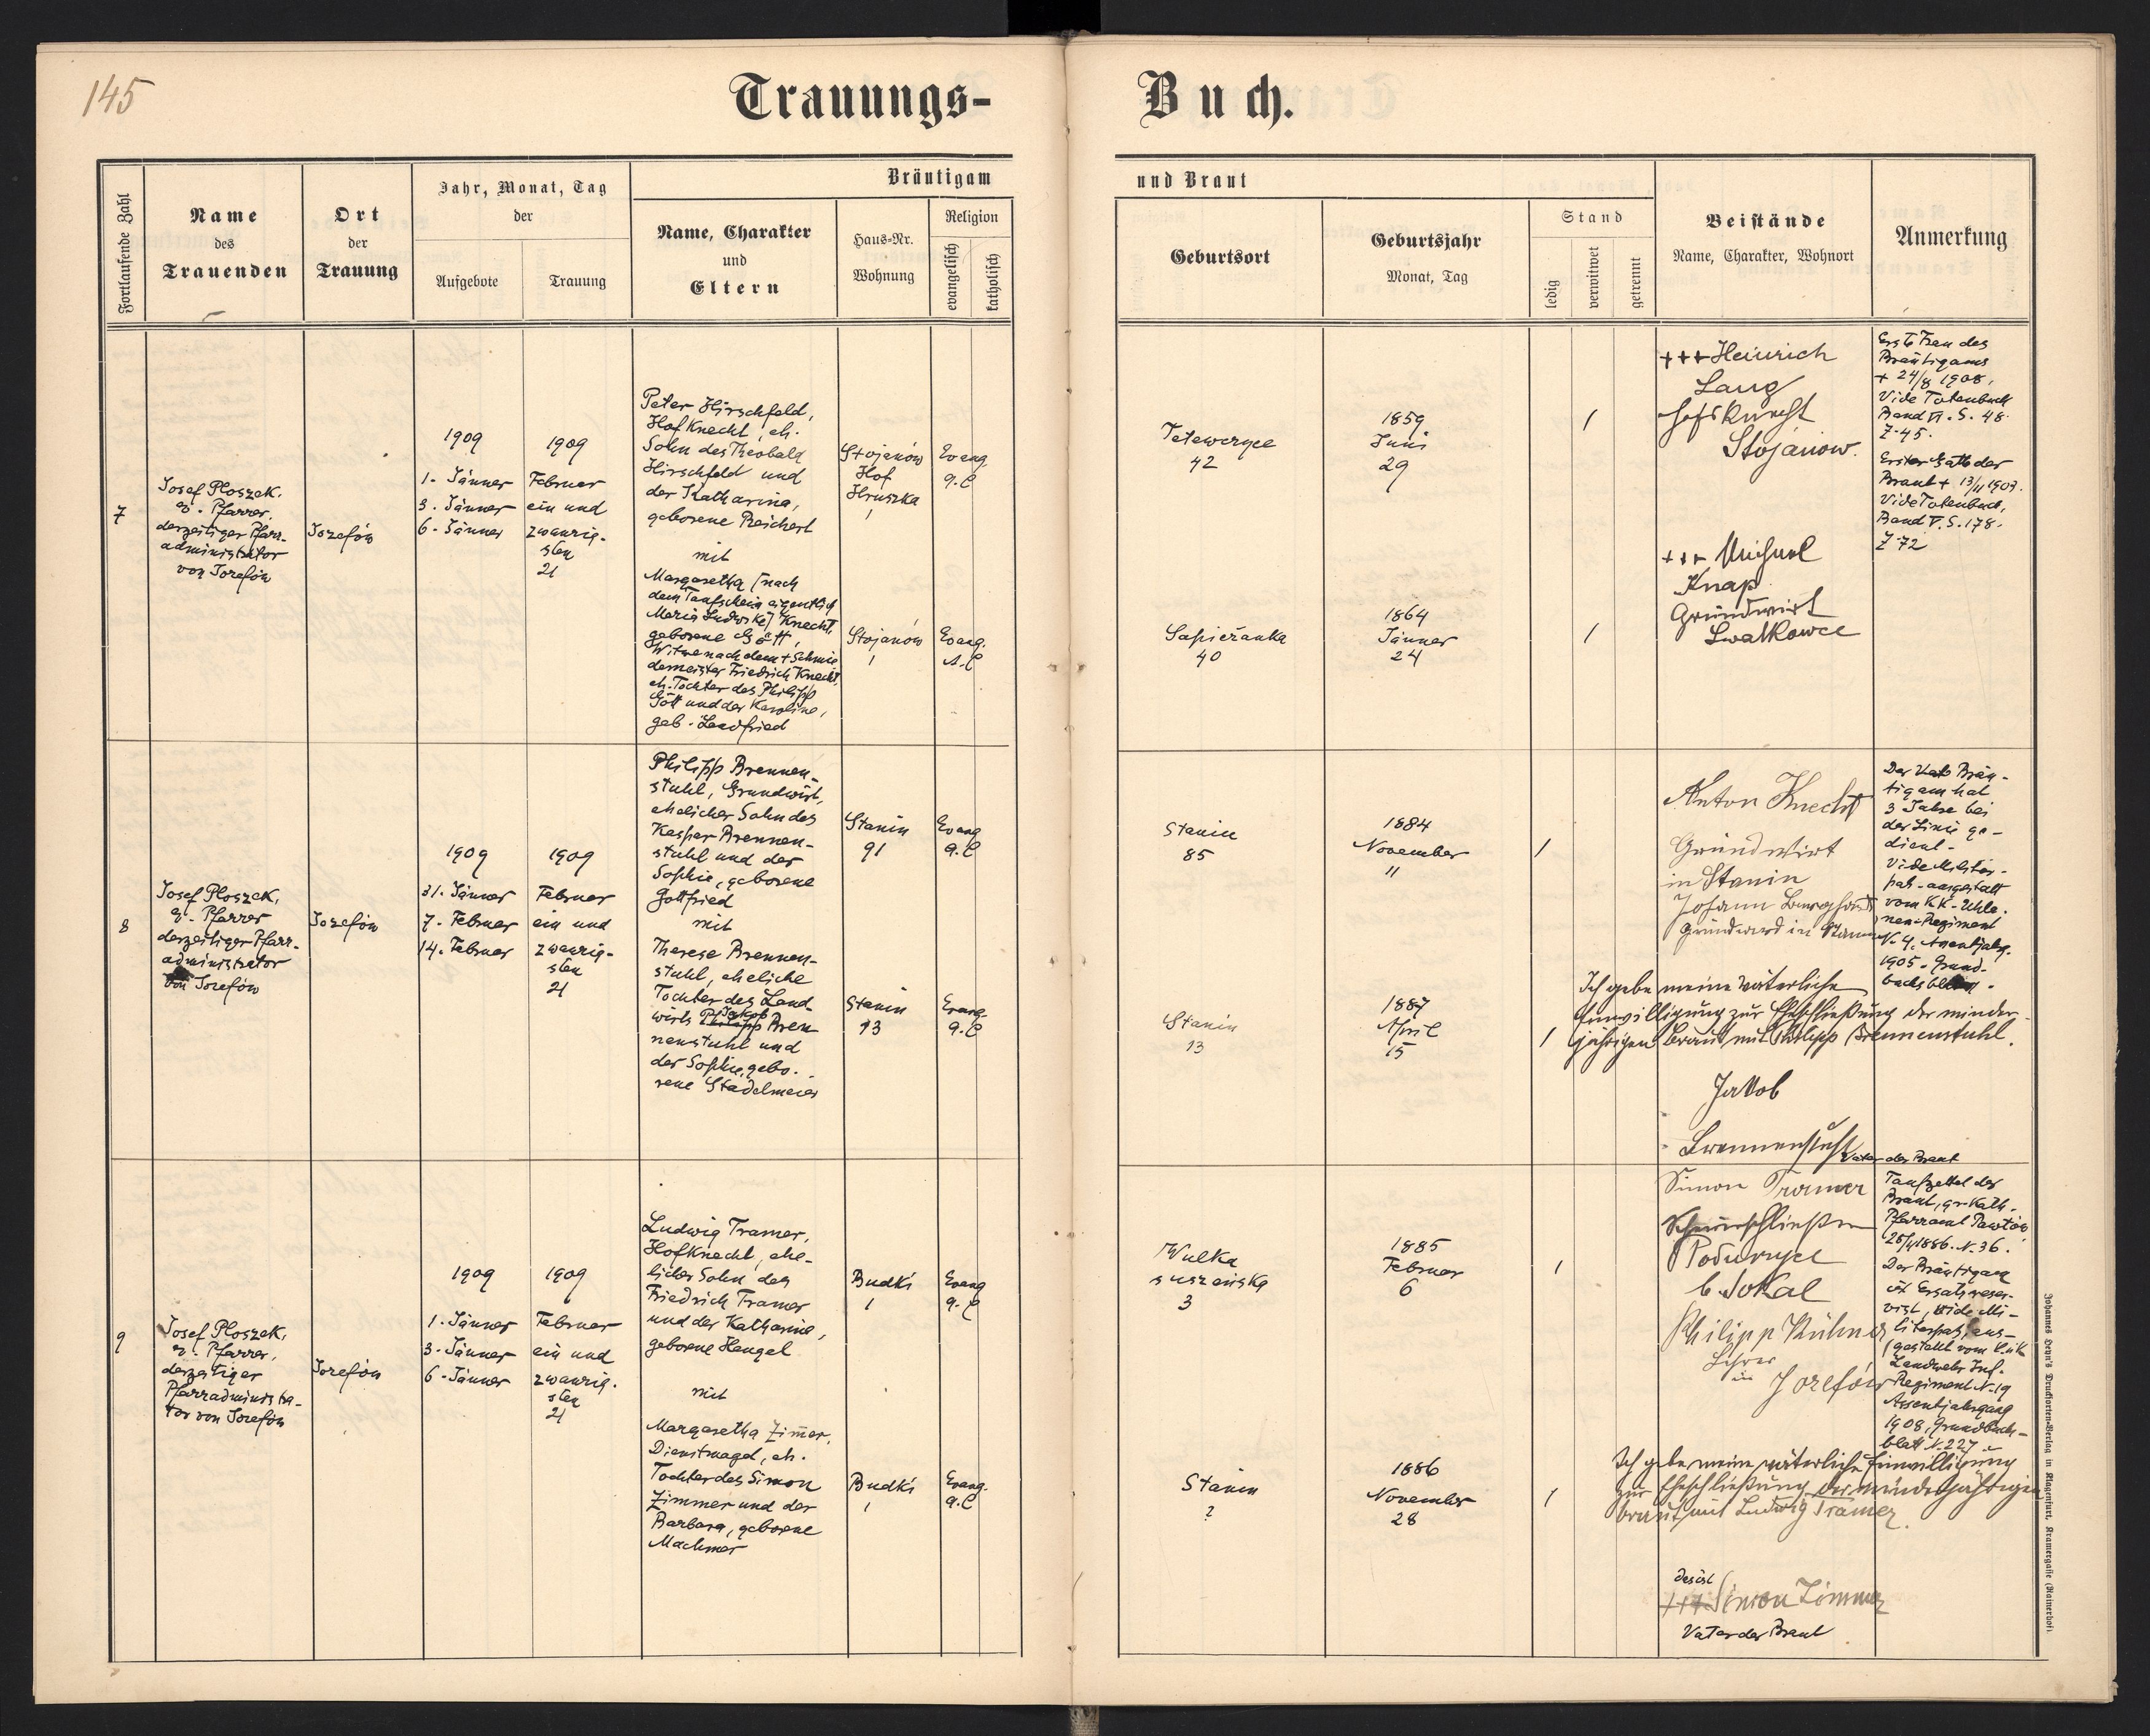 145
Trauungs-
Buch.
Fortlaufende Zahl
Name
des
Trauenden
Ort
der
Trauung
Jahr, Monat, Tag
der
Aufgebote
Trauung
Bräutigam
Name, Charakter
und
Eltern
Haus-Nr.
Wohnung
Religion
evangelisch
katholisch
und Braut
Geburtsort
Geburtsjahr
Monat, Tag
Stand
ledig
verwitwet
getrennt
Beistände
Name, Charakter, Wohnort
Anmerkung
7
Josef Ploszek,
ev. Pfarrer,
derzeitiger Pfarr-
administrator
von Josefów
Josefów
1909
1. Jänner
3. Jänner
6. Jänner
1909
Februar
ein und
zwanzig-
sten
21
Peter Hirschfeld,
Hofknecht, eh.
Sohn des Theobald
Hirschfeld und
der Katharina,
geborene Reichert
mit
Margaretha [nach
dem Taufschein eigentlich
Maria Ludwika] Knecht,
geborene Gött,
Witwe nach dem + Schmie
demeister Friedrich Knecht,
eh. Tochter des Philipp
Gött und der Karoline,
geb. Landfried
Stojanów
Hof
Hruszka
1
Evang.
A.C
Stojanów
1
Evang.
A.C
Tetewczyce
42
1859
Juni
29
1
Sapieżanka
40
1864
Jänner
24
1
+++ Heinrich
Lang
Hofsknecht
Stojanow.
+++ Michael
Knap
Grundwirt
Swatkowce
Erste Frau des
Bräutigams
+ 24/8 1908,
Vide Totenbuch
Band VI. S. 48.
Z. 45.
Erster Gatte der
Braut + 13/11 1907.
Vide Totenbuch,
Band V. S. 178.
Z. 72
8
Josef Ploszek,
ev. Pfarrer
derzeitiger Pfarr-
administrator
von Josefów
Josefów
1909
31. Jänner
7. Februar
14. Februar
1909
Februar
ein und
zwanzig-
sten
21
Philipp Brennen-
stuhl, Grundwirt,
ehelicher Sohn des
Kasper Brennen-
stuhl und der
Sophie, geborene
Gottfried
mit
Therese Brennen-
stuhl, eheliche
Tochter des Land-
wirts Philipp Jakob Bren-
nenstuhl und
der Sophie, gebo-
rene Stadelmeier
Stanin
91
Evang
A.C
Stanin
13
Evang.
A.C
Stanin
85
1884
November
11
1
Stanin
13
1887
April
15
1
Anton Knecht
Grundwirt
in Stanin
Johann
Grundward in Stanin
Der Bräu-
tigam hat
3 Jahre bei
der Linie ge-
dient.
Vide Militär-
paß - ausgestellt
vom K.K. Uhla-
nen-Regiment
N. 4. Assentjahrg.
1905. Grund-
buchsblatt.
Ich gebe meine väterliche
Einwilligung zur Eheschließung der minder-
jährigen Braut mit Philipp Brennenstuhl.
Jakob
Brennenstuhl
Vater der Braut
9
Josef Ploszek,
ev. Pfarrer,
derzeitiger
Pfarradministra-
tor von Josefów
Josefów
1909
1. Jänner
3. Jänner
6. Jänner
1909
Februar
ein und
zwanzig-
sten
21
Ludwig Tramer,
Hofknecht, ehe-
licher Sohn des
Friedrich Tramer
und der Katharine,
geborene Hengel
mit
Margaretha Zim̄er,
Dienstmagd, eh.
Tochter des Simon
Zimmer und der
Barbara, geborene
Machmer
Budki
1
Evang
A.C
Budki
1
Evang.
A.C
Wulka
suszeńska
3
1885
Februar
6
1
Stanin
?
1886
November
28
1
Simon Tramer
b. Sokal
Philipp Kühner
Lehrer
in Josefów
Taufzettel der
Braut, gr. Kath.
Pfarramt Pawtów
28/11886. N. 36.
Der Bräutigam
ist Ersatzreser-
vist, vide Mi-
litärpaß, aus-
gestellt vom K.u.K.
Landwehr Inf.
Regiment N. 19
Assentjahrgang
1908, Grundbuch-
blatt N. 227
Ich gebe meine väterliche Einwilligung
zur Eheschließung der minderjährigen
Braut mit Ludwig Tramer.
das ist
+++ Simon Zimmer
Vater der Braut
Johannes Heyn's Drucksorten-Verlag in Klagenfurt, Kramergasse (Rainerhof).